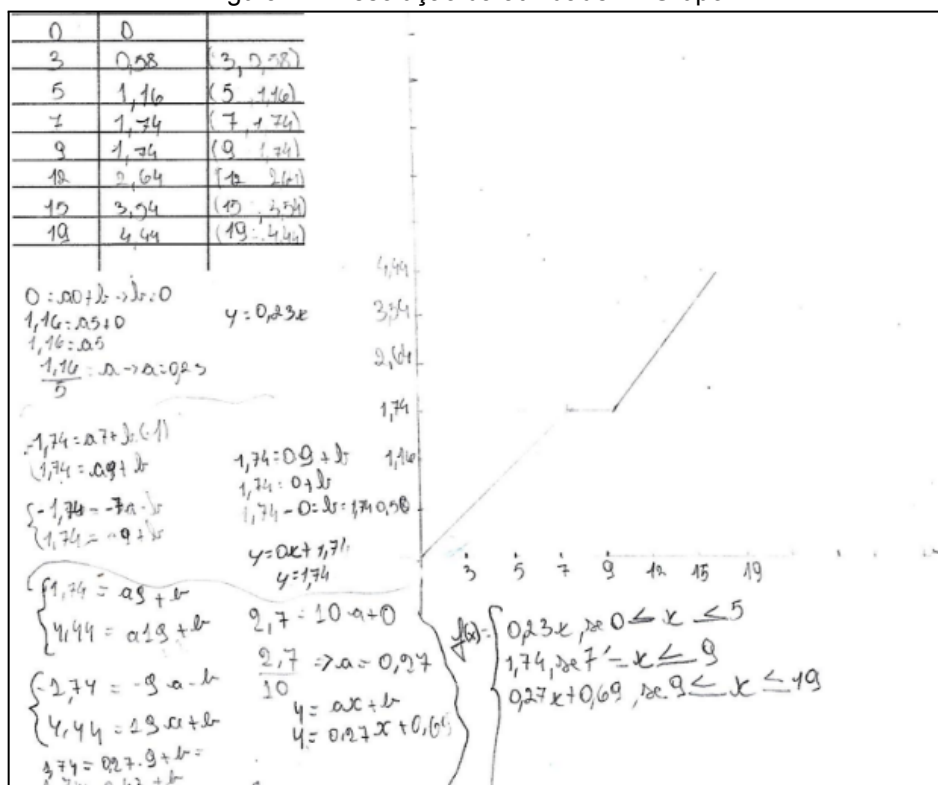 0 0
3 0,58 (3, 0,58)
5 1,16 (5, 1,16)
7 1,74 (7, 1,74)
9 1,74 (9 1,74)
12 2,64 (12 2,64)
15 3,54 (15, 3,54)
19 4,44 (19 4,44)
0 = a0+b -> b=0
1,16 = a5+0
1,16 = a5
1,16/5 = a -> a = 0,23
y = 0,23x
-1,74 = a7+b.(-1)
1,74 = a9+b
-1,74 = -7a-b
1,74 = -9+b
1,74 = 09+b
1,74 = 0+b
1,74 - 0 = b = 1,74
y = 0x+1,74
y = 1,74
1,74 = a9+b
4,44 = a19+b
-1,74 = -9a-b
4,44 = 19a+b
1,74 = 0,27.9+b =
2,7 = 10a+0
2,7/10 => a = 0,27
y = ax+b
y = 0,27x+0,69
4,44
3,54
2,64
1,74
1,16
0,58
3 5 7 9 12 15 19
f(x) = 0,23x, se 0 ≤ x ≤ 5
1,74, se 7 = x ≤ 9
0,27x+0,69, se 9 ≤ x ≤ 19